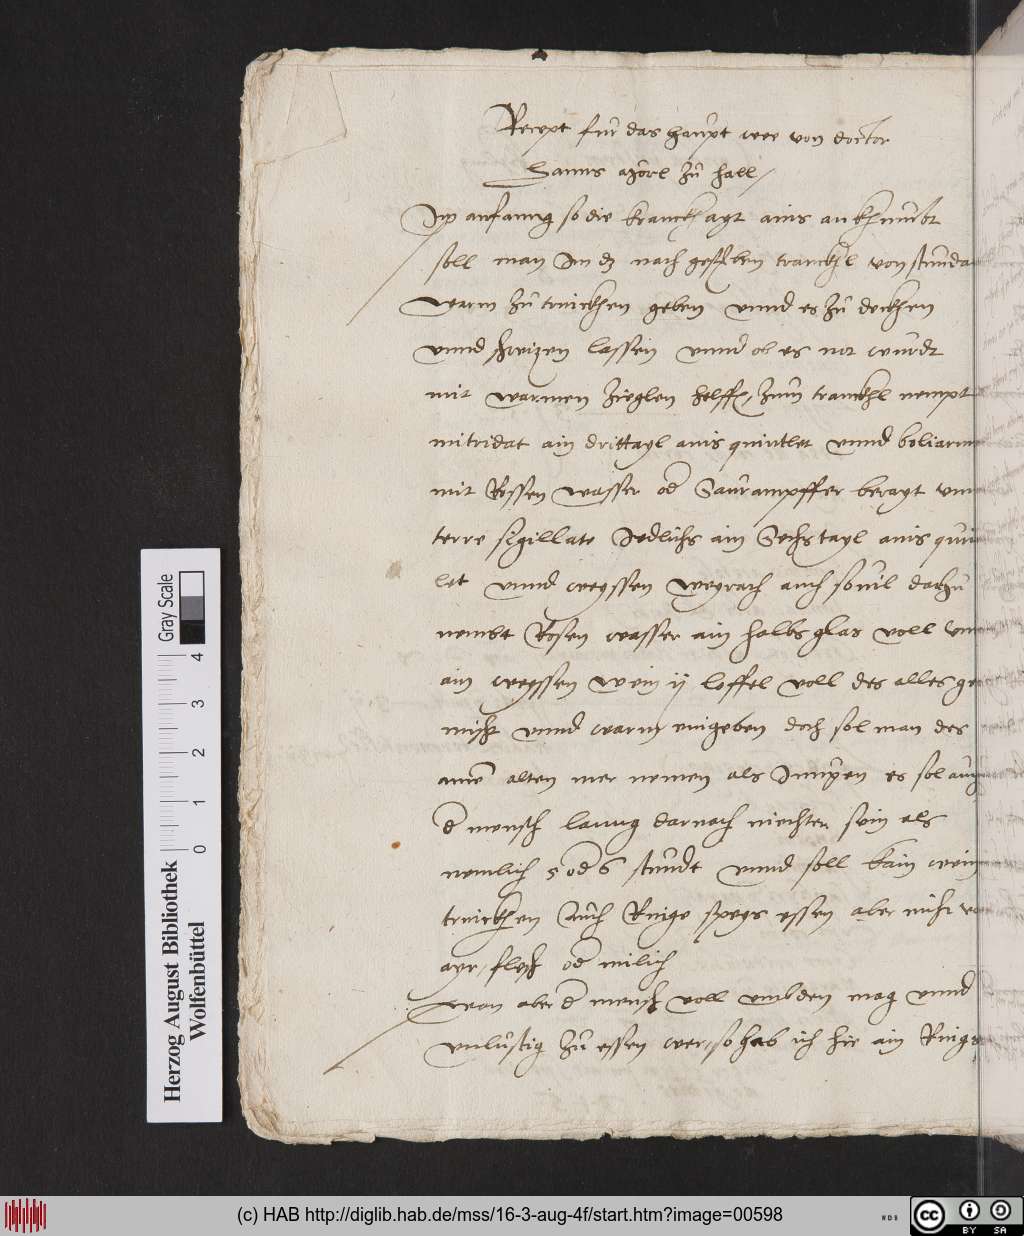 Recept für das haüpt wee von doctor
Hanns zü hall
Im anfanng so die kranckhayt ains ankhumbt
soll man Im dz nach geschriben tranckhl von stünda
warm zü trinckhen geben vnnd es zü deckhen
vnnd schwizen lassen vnnd ob es not würdt
mit warmen zieglen helffen, züm tranckhl nempt
mitridat ain drittayl ains quintlet vnnd boliarm
mit Rossen wasser od Saürampffer berayt vnn
terre sigillate Iedlichs ain Sechstayl ains qui
let vnnd weyssen weyrach auch souil darzü
nembt Rosen wasser ain halbs glas voll vnn
ain weyssen wein ij loffel voll des alles ge
mischt vnnd warm eingeben doch sol man des
aine alten mer nemen als Jungen es sol aüch
d mensch lanng darnach niechter sein als
nemlich 5 od 6 stündt vnnd soll kain wein
trinckhen Aüch Ringe speys essen aber nicht
ayr, flesch od milich
wan aber d mensch voll vmb den mag vnnd
vnlüstig zü essen wer, so hab ich hie ain Ringe
Herzog August Bibliothek
Wolfenbüttel
0 1 2 3 4
Gray Scale
(c) HAB http://diglib.hab.de/mss/16-3-aug-4f/start.htm?image=00598
WDB
cc BY SA